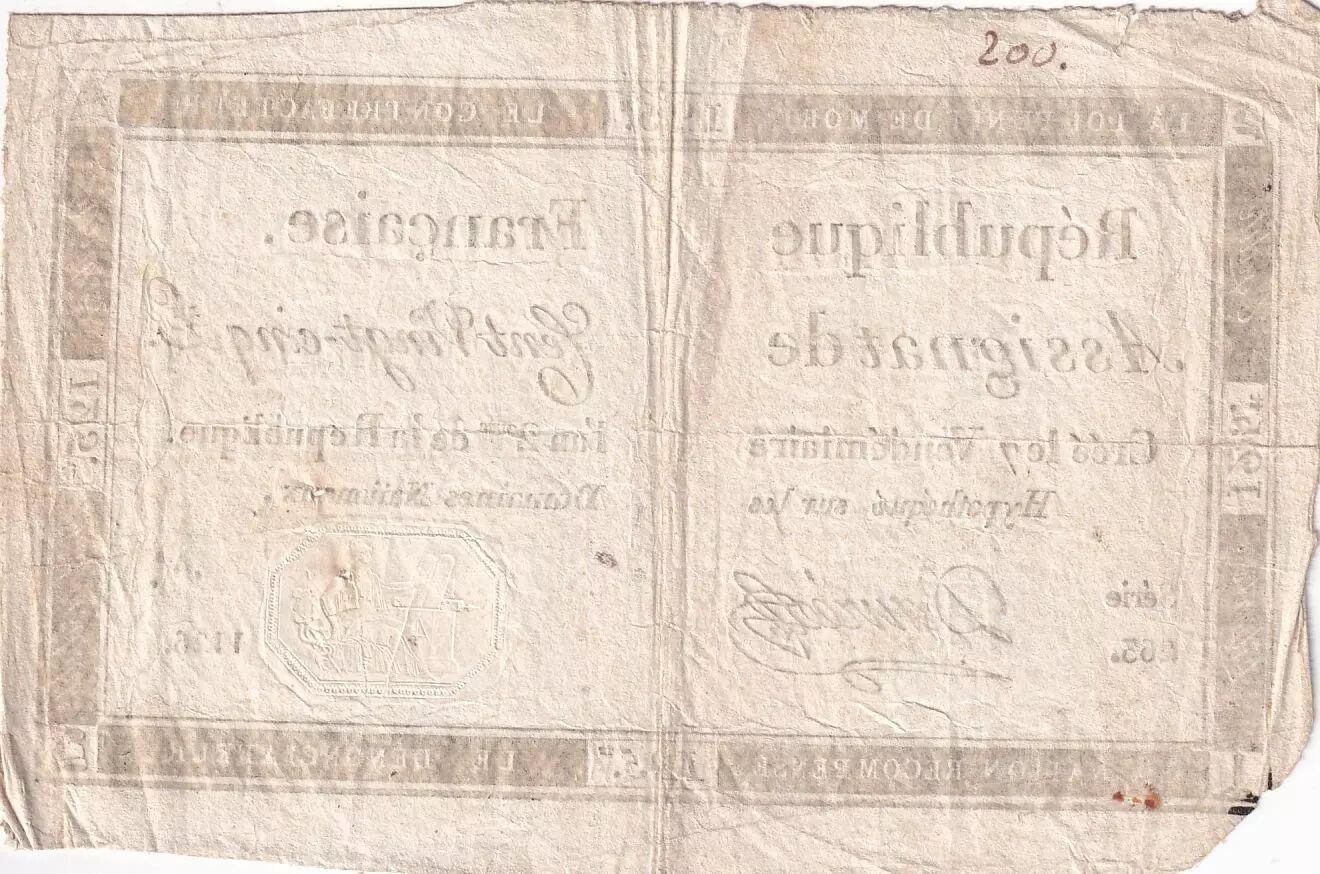 200.
LA LOI PUNIT DE MORT LE CONTREFACTEUR
République Française.
Assignat de Cent Vingt-cinq
Créé le 7 Vendémiaire l'an 2me de la République.
Hypothéqué sur les Domaines Nationaux.
Série
1126.
125.
125.
LA NATION RECOMPENSE LE DENONCIATEUR